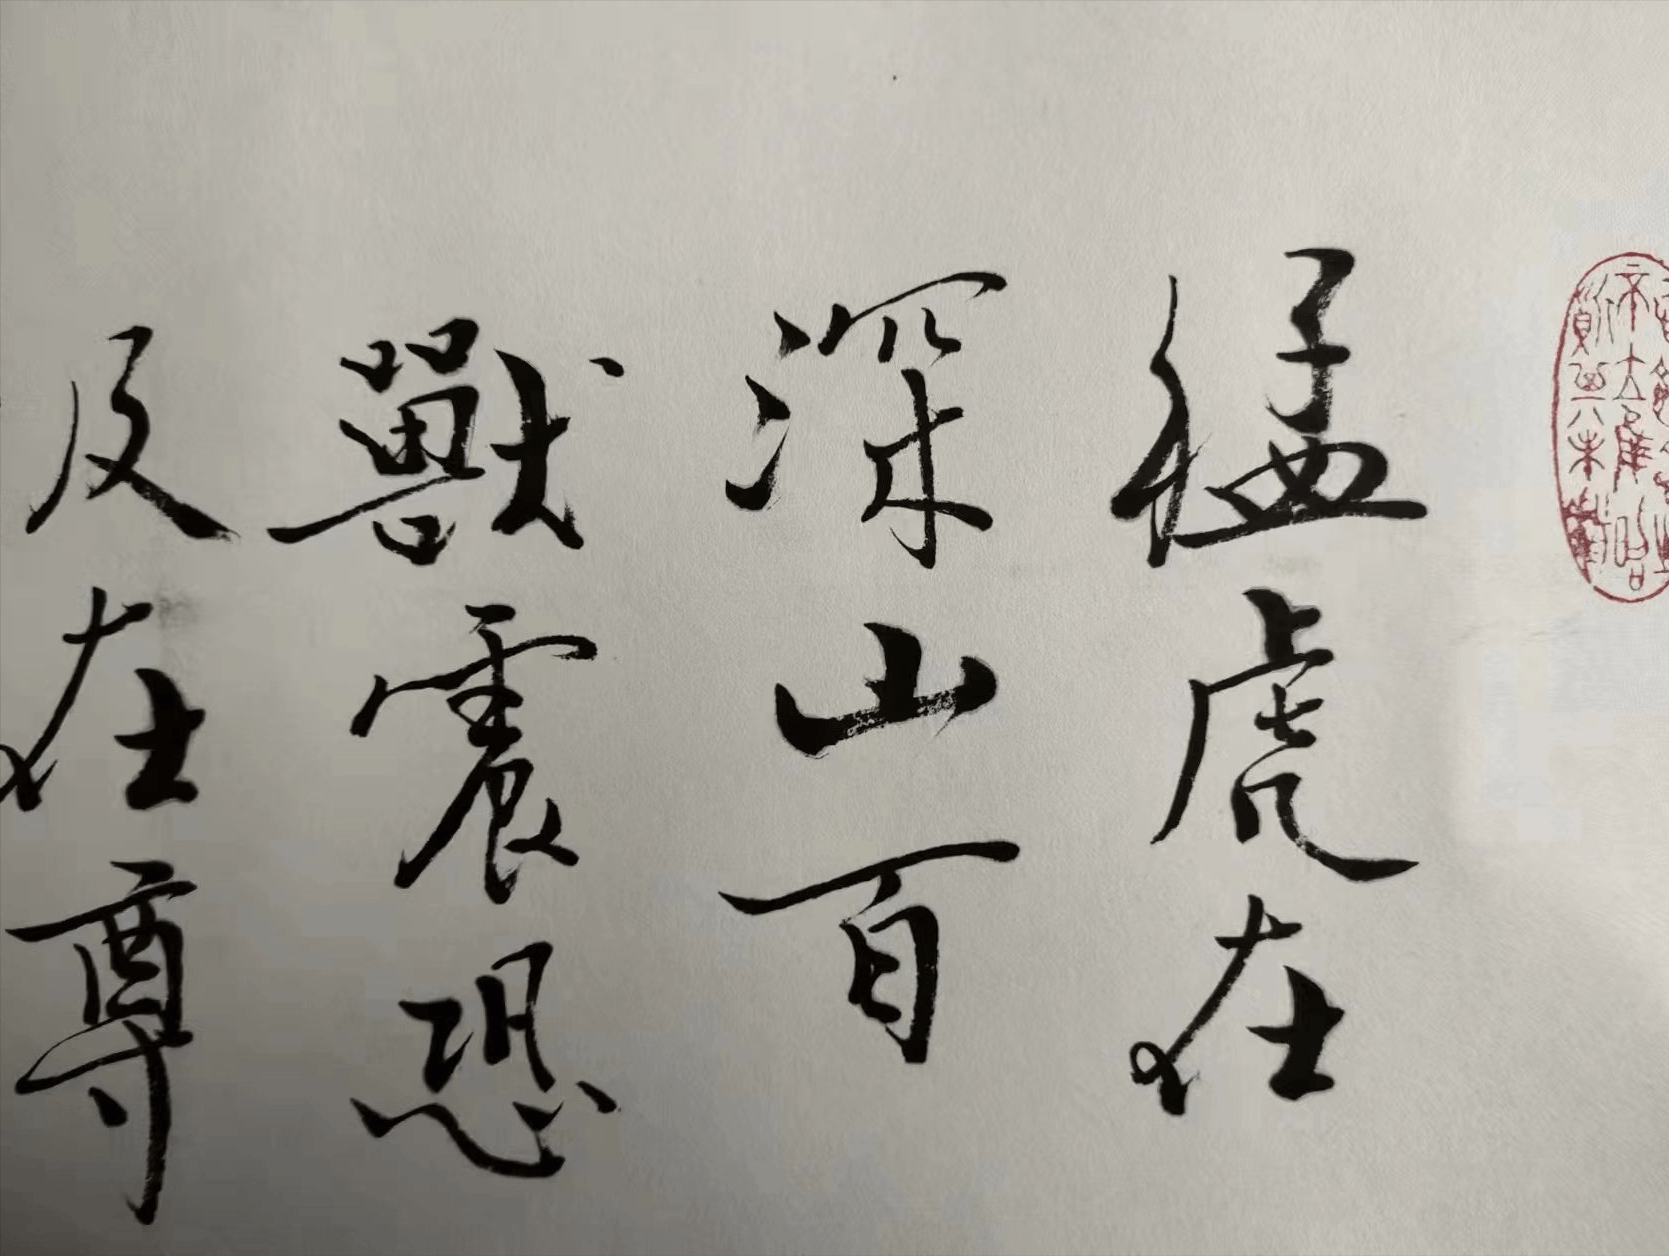 猛虎在
深山百
獸震恐
及在尊